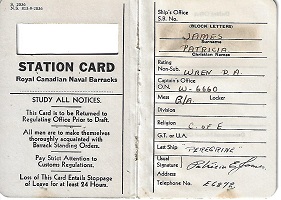 R. 2036
N.S. 815-9-2036
STATION CARD
Royal Canadian Naval Barracks
STUDY ALL NOTICES.
This Card is to be Returned to
Regulating Office Prior to Draft.
All men are to make themselves
thoroughly acquainted with
Barrack Standing Orders.
Pay Strict Attention to
Customs Regulations.
Loss of This Card Entails Stoppage
of Leave for at least 24 Hours.
Ship's Office
S.B. No.
(BLOCK LETTERS)
JAMES
Surname
PATRICIA
Christian Names
Rating
Non-Sub. WREN P.A.
Captain's Office
O.N. W-6660
Mess B/A. Locker
Division
Religion C of E
G.T. or U.A.
Last Ship "PEREGRINE"
Usual
Signature Patricia E. James
Telephone No.